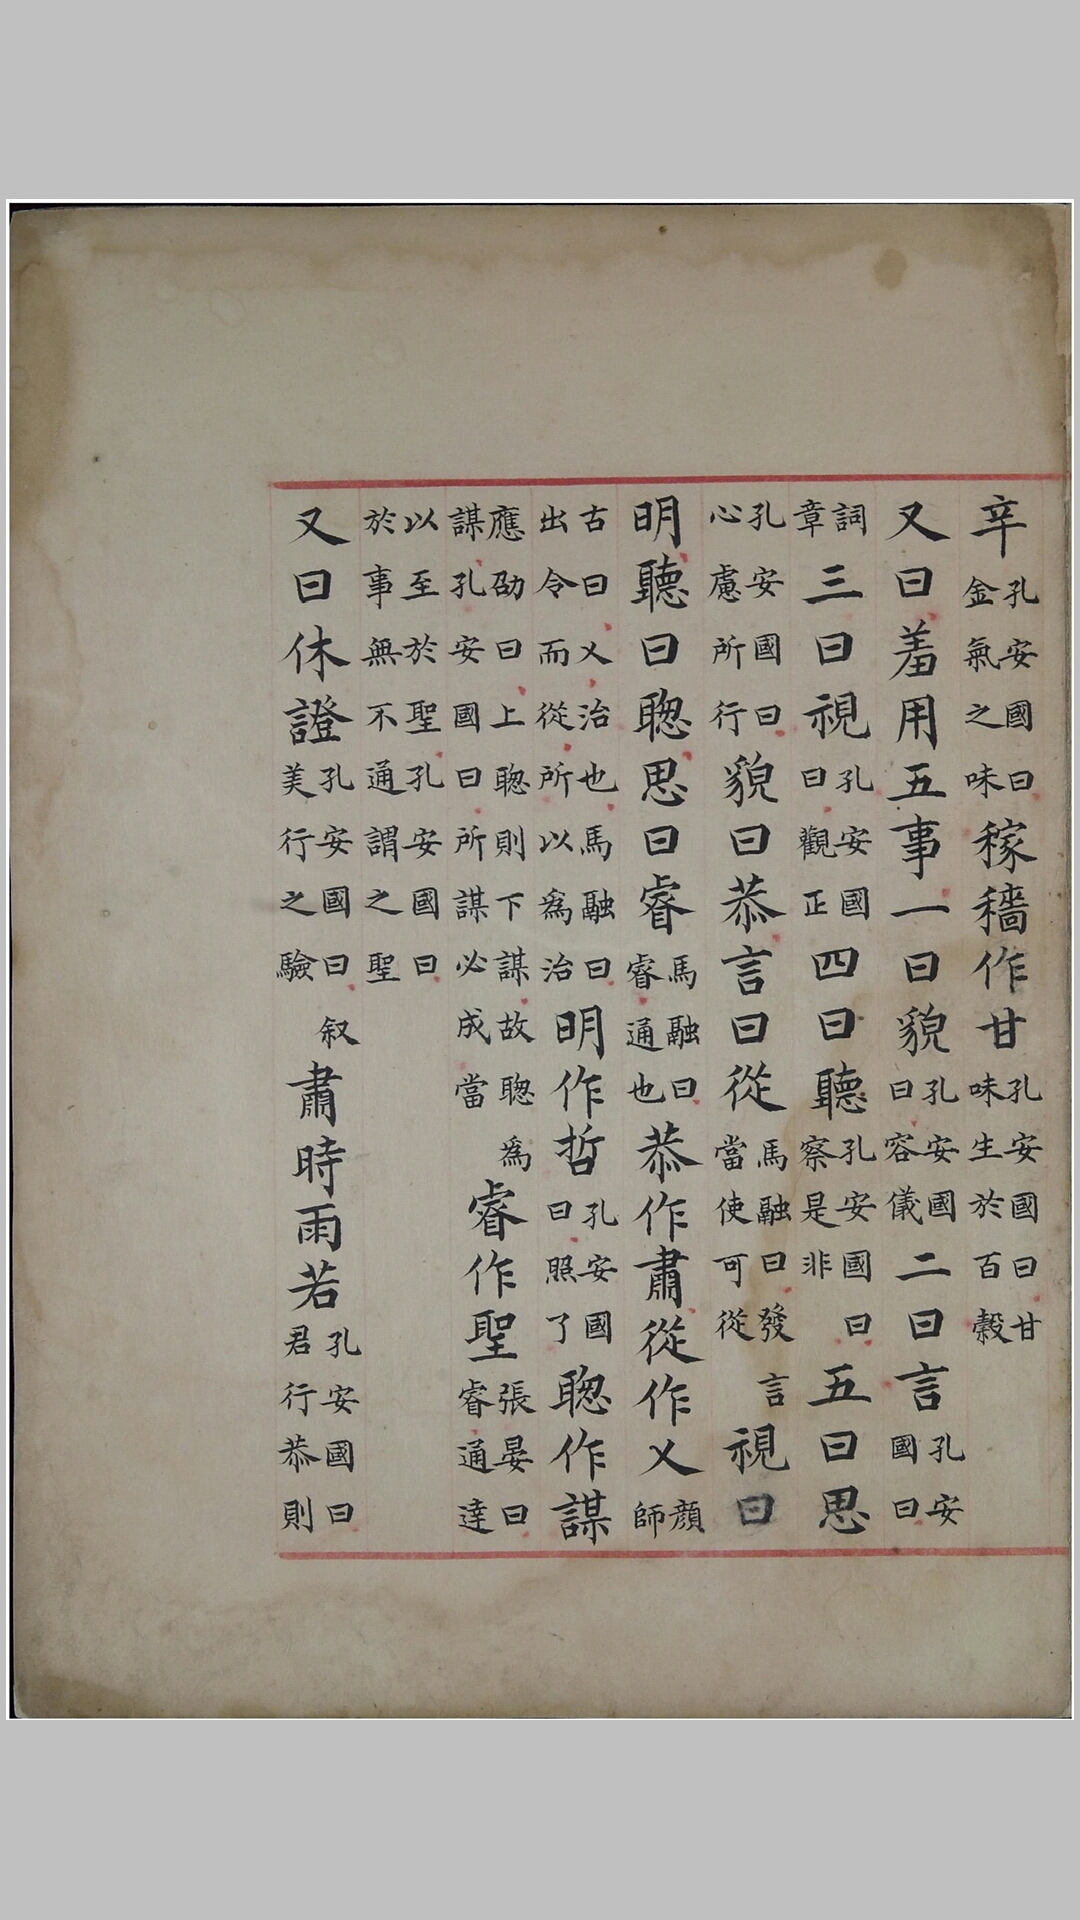 辛孔安國曰金氣之味稼穡作甘孔安國曰甘味生於百穀
又曰羞用五事一曰貌孔安國曰容儀二曰言孔安國曰
詞章三曰視孔安國曰觀正四曰聽孔安國曰察是非五曰思
孔安國曰心慮所行貌曰恭言曰從馬融曰發言當使可從視曰
明聽曰聦思曰睿馬融曰睿通也恭作肅從作乂顏師
古曰乂治也馬融曰出令而從所以爲治明作哲孔安國曰照了聦作謀
應劭曰上聦則下謀故聦爲謀孔安國曰所謀必成當睿作聖張晏曰睿通達
以至於聖孔安國曰於事無不通謂之聖
又曰休證孔安國曰叙美行之驗肅時雨若孔安國曰君行恭則